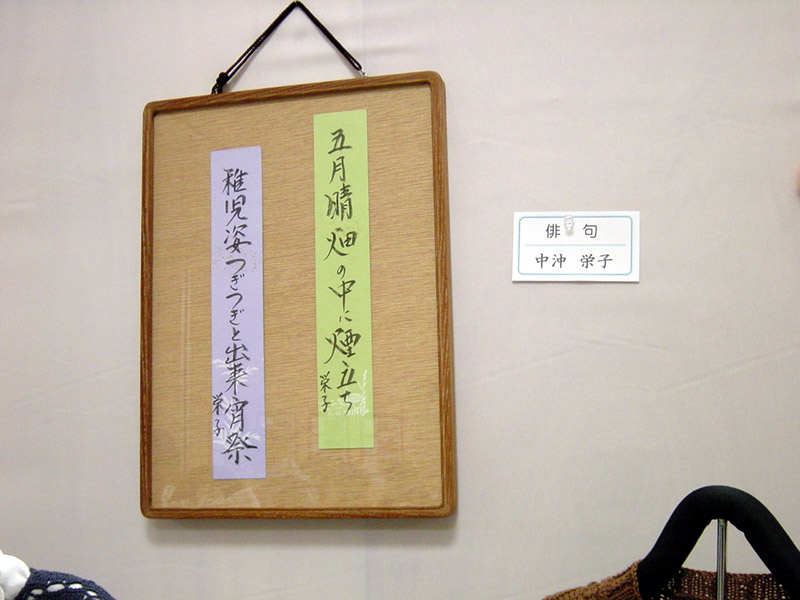 五月晴畑の中に煙立ち
栄子
稚児姿つぎつぎと出来宵祭
栄子
俳句
中沖 栄子